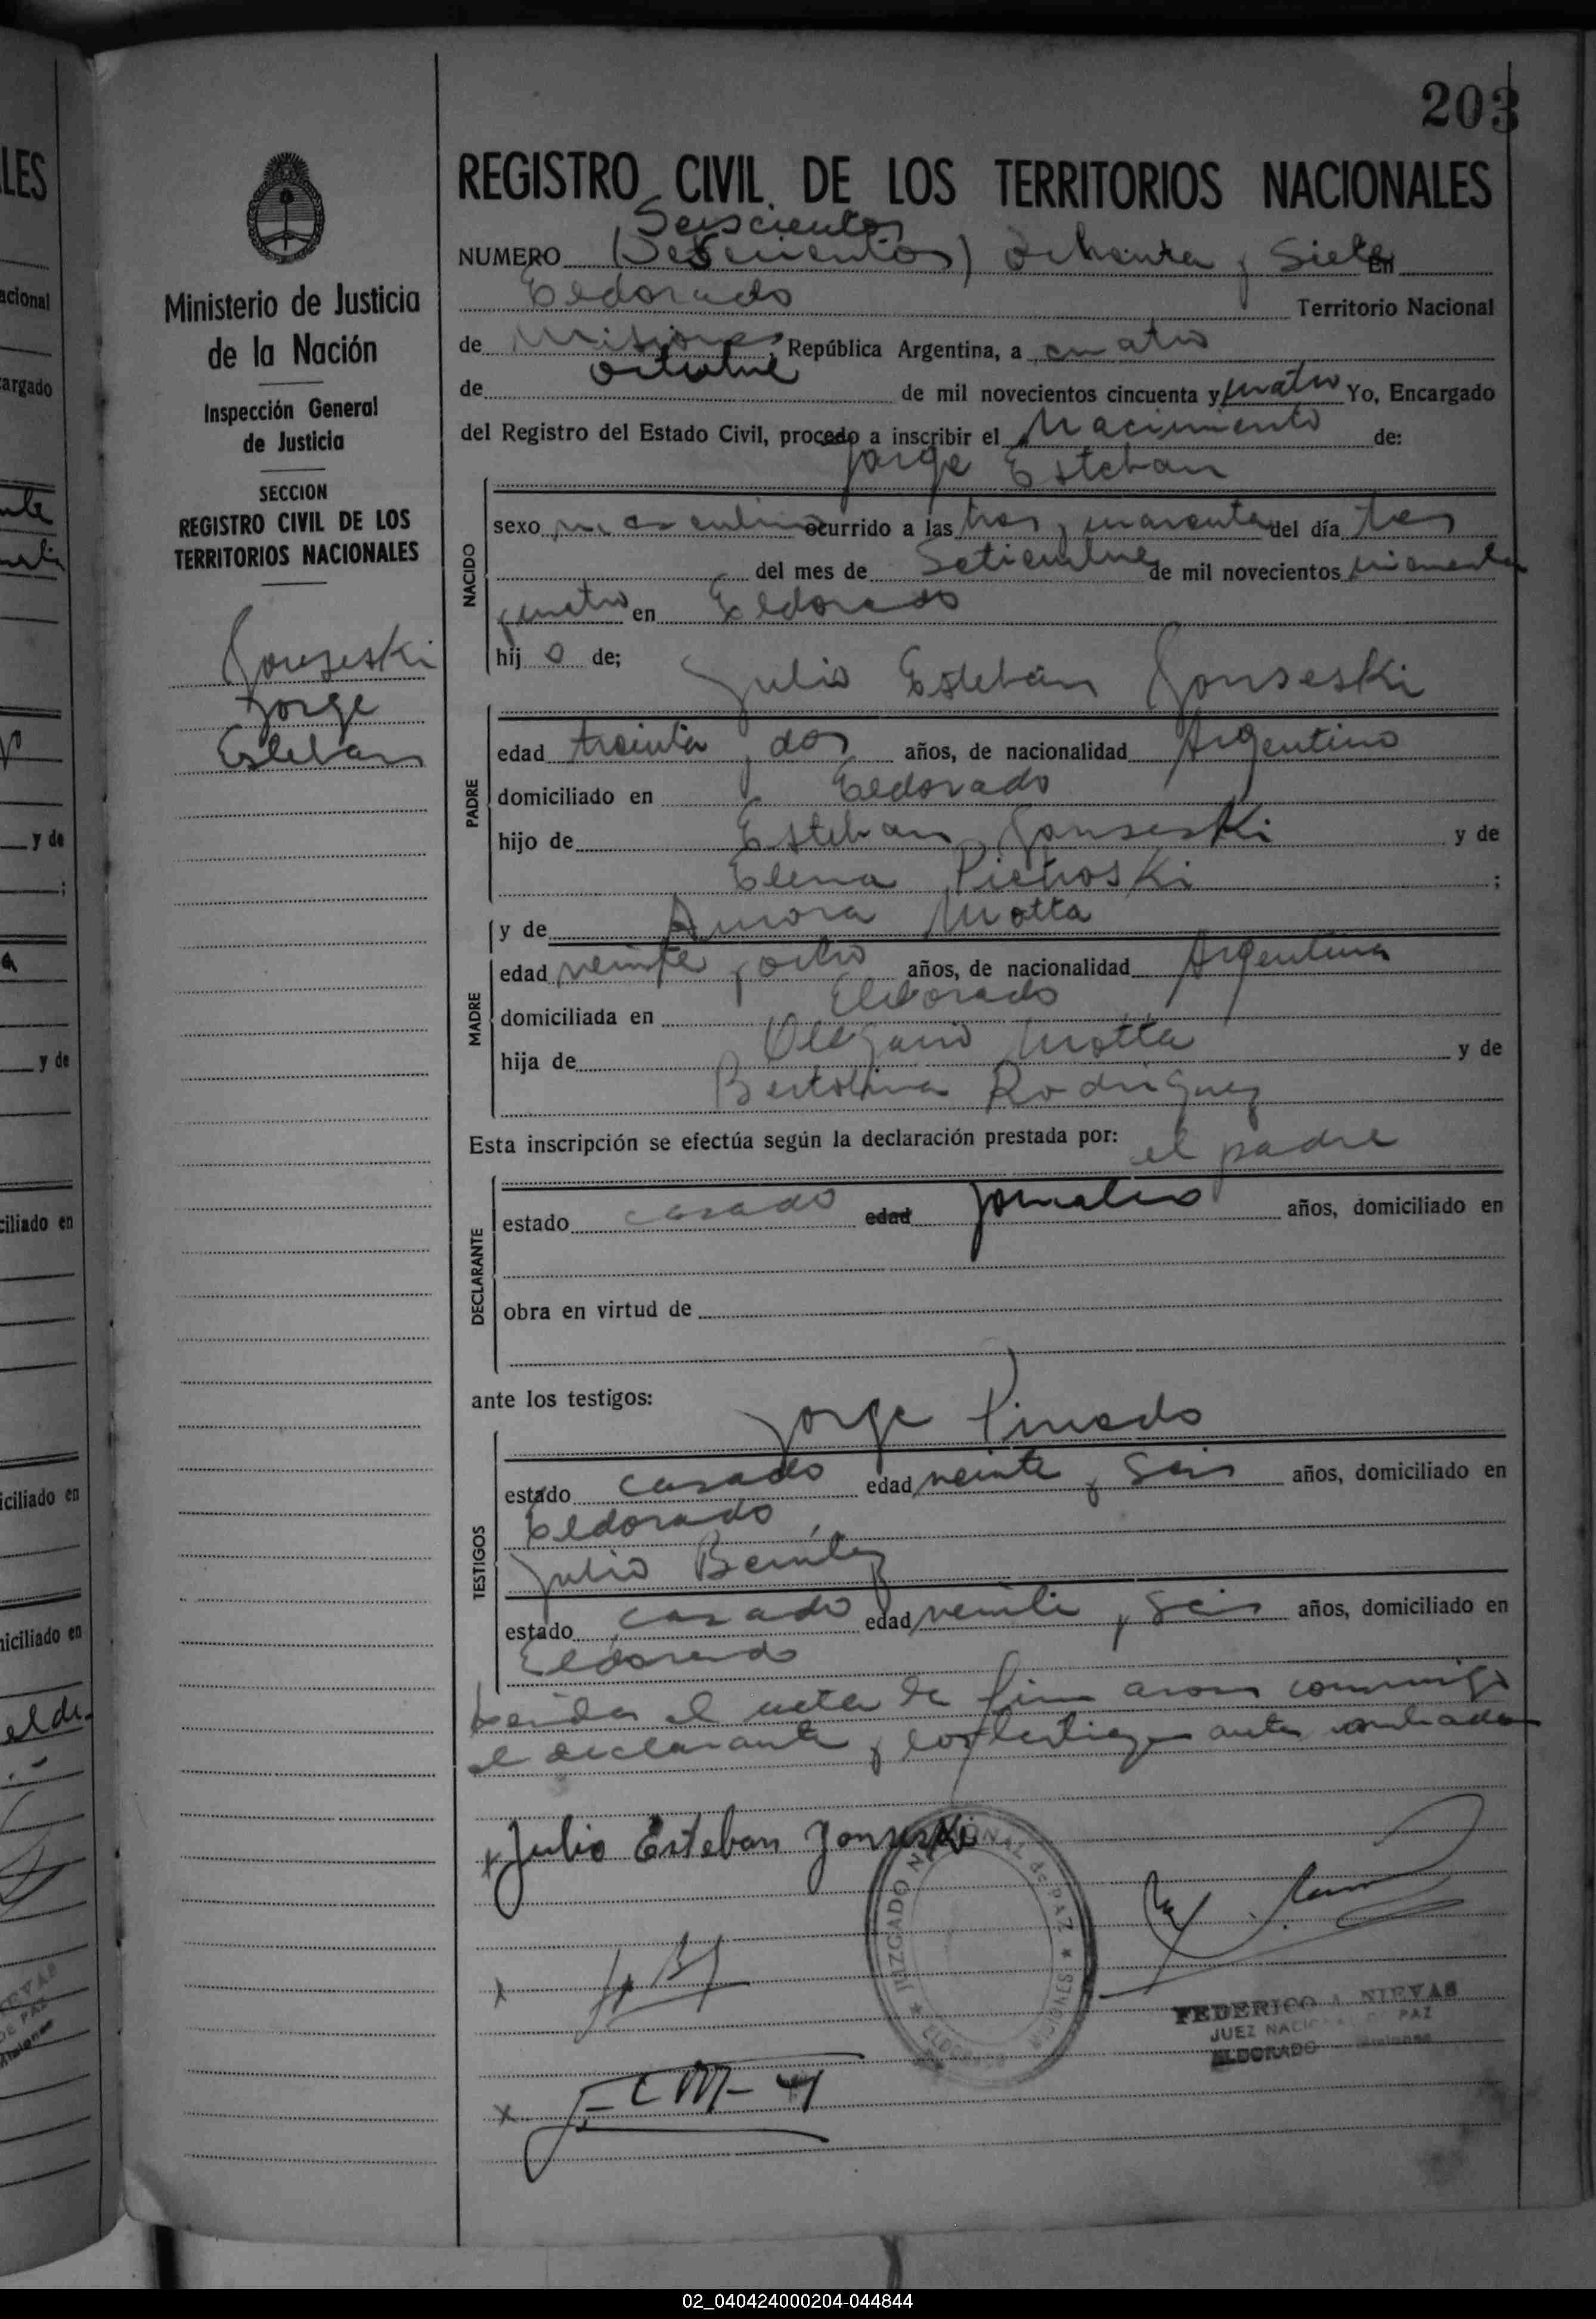 203
REGISTRO CIVIL DE LOS TERRITORIOS NACIONALES
Seiscientos
NUMERO ochenta y Siete En
Eldorado Territorio Nacional
de Misiones, República Argentina, a cuatro
de octubre de mil novecientos cincuenta y cuatro Yo, Encargado
del Registro del Estado Civil, procedo a inscribir el Nacimiento de:
Jorge Esteban
NACIDO
sexo masculino ocurrido a las tres y cuarenta del día tres
del mes de Setiembre de mil novecientos cincuenta
cuatro en Eldorado
hij o de;
Julio Esteban Jonseski
PADRE
edad treinta y dos años, de nacionalidad Argentino
domiciliado en Eldorado
hijo de Esteban Jonseski y de
Elena Pietroski ;
y de Aurora Motta
MADRE
edad veinte y ocho años, de nacionalidad Argentina
domiciliada en Eldorado
hija de Motta y de
Rodriguez
Esta inscripción se efectúa según la declaración prestada por: el padre
DECLARANTE
estado casado edad jornalero años, domiciliado en
obra en virtud de
ante los testigos:
Jorge Pinedo
TESTIGOS
estado casado edad veinte y seis años, domiciliado en
Eldorado
Julio Benítez
estado casado edad veinte y seis años, domiciliado en
Eldorado
el acta la firmaron conmigo
el declarante y los testigos antes nombrados
Julio Esteban Jonseski
JUZGADO NACIONAL de PAZ
ELDORADO MISIONES
FEDERICO A. NIEVAS
JUEZ NACIONAL DE PAZ
ELDORADO Misiones
Ministerio de Justicia
de la Nación
Inspección General
de Justicia
SECCION
REGISTRO CIVIL DE LOS
TERRITORIOS NACIONALES
Jonseski
Jorge
Esteban
LES
acional
argado
y de
y de
ciliado en
iciliado en
niciliado en
02_040424000204-044844